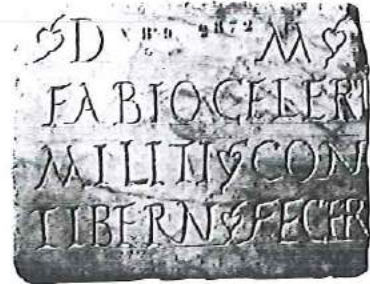 ❦ D M ❦
FABIO CELERI
MILITI ❦ CON
TIBERN ❦ FECER